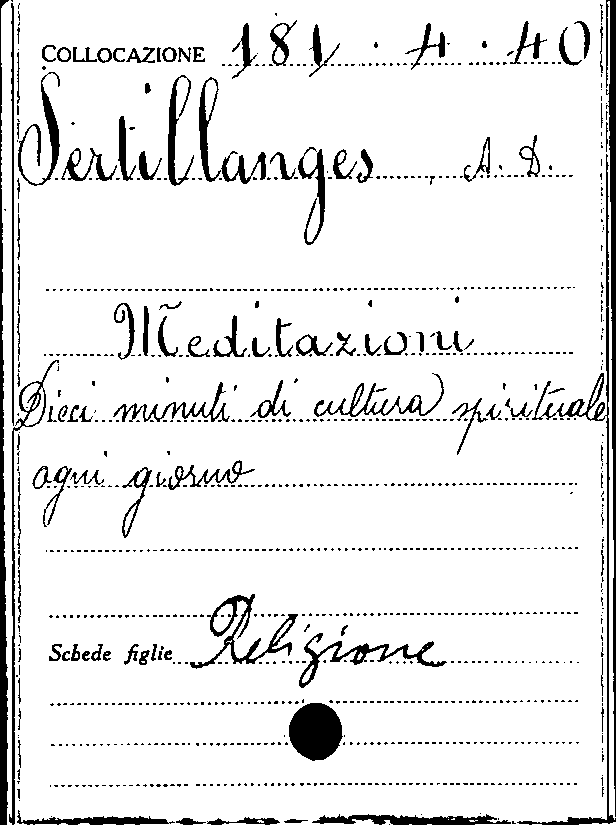 COLLOCAZIONE 181 . 4 . 40
Sertillanges, A. D.
Meditazioni
Dieci minuti di cultura spirituale
ogni giorno
Schede figlie Religione